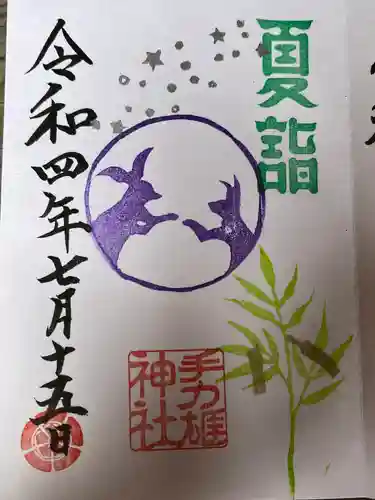 夏詣
令和四年七月十五日
手力雄
神社